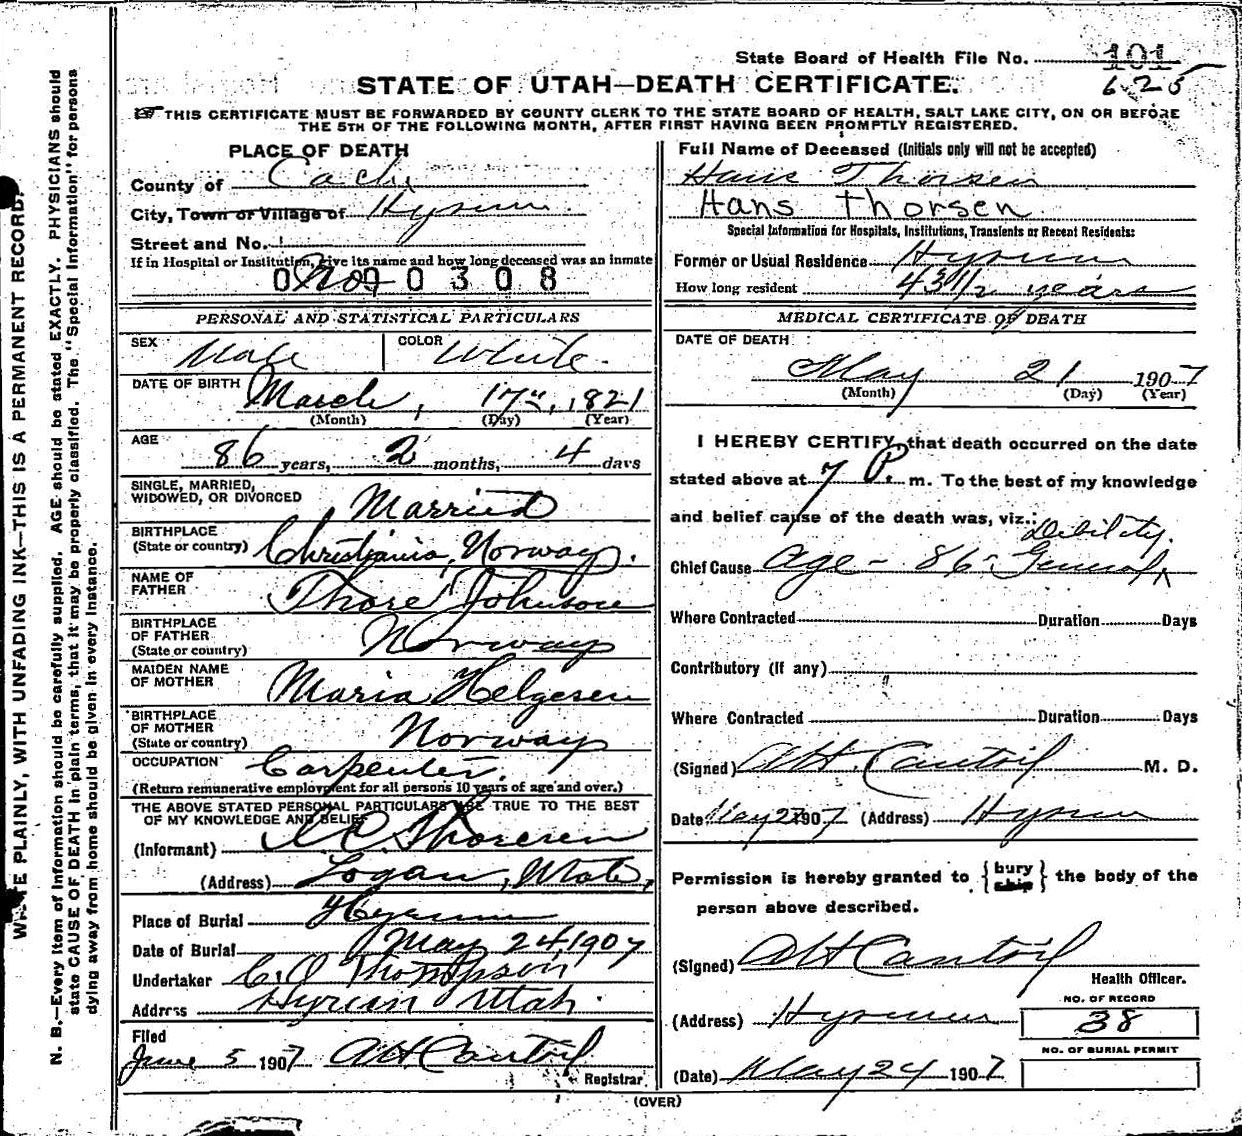 State Board of Health File No. 101
625
STATE OF UTAH—DEATH CERTIFICATE.
THIS CERTIFICATE MUST BE FORWARDED BY COUNTY CLERK TO THE STATE BOARD OF HEALTH, SALT LAKE CITY, ON OR BEFORE
THE 5TH OF THE FOLLOWING MONTH, AFTER FIRST HAVING BEEN PROMPTLY REGISTERED.
WRITE PLAINLY, WITH UNFADING INK—THIS IS A PERMANENT RECORD.
N. B.—Every item of information should be carefully supplied. AGE should be stated EXACTLY. PHYSICIANS should
state CAUSE OF DEATH in plain terms, that it may be properly classified. The "Special Information" for persons
dying away from home should be given in every instance.
PLACE OF DEATH
County of Cache
City, Town or Village of Hyrum
Street and No.
If in Hospital or Institution, give its name and how long deceased was an inmate
No 0308
PERSONAL AND STATISTICAL PARTICULARS
SEX Male COLOR White.
DATE OF BIRTH March, 17th, 1821
(Month) (Day) (Year)
AGE
86 years, 2 months, 4 days
SINGLE, MARRIED,
WIDOWED, OR DIVORCED Married
BIRTHPLACE
(State or country) Christiania, Norway.
NAME OF
FATHER Thore Johnson
BIRTHPLACE
OF FATHER
(State or country) Norway
MAIDEN NAME
OF MOTHER Maria Helgesen
BIRTHPLACE
OF MOTHER
(State or country) Norway
OCCUPATION Carpenter.
(Return remunerative employment for all persons 10 years of age and over.)
THE ABOVE STATED PERSONAL PARTICULARS ARE TRUE TO THE BEST
OF MY KNOWLEDGE AND BELIEF
(Informant) Thoresen
(Address) Logan, Utah.
Place of Burial Hyrum
Date of Burial May 24, 1907
Undertaker C.O Thompson
Address Hyrum Utah.
Filed
June 5 1907 Registrar
Full Name of Deceased (Initials only will not be accepted)
Hans Thorsen
Hans Thorsen
Special Information for Hospitals, Institutions, Transients or Recent Residents:
Former or Usual Residence Hyrum
How long resident 43 1/2 years
MEDICAL CERTIFICATE OF DEATH
DATE OF DEATH
May 21 1907
(Month) (Day) (Year)
I HEREBY CERTIFY, that death occurred on the date
stated above at 7 P. m. To the best of my knowledge
and belief cause of the death was, viz.:
Chief Cause Age - 86 - General Debility.
Where Contracted Duration Days
Contributory (if any)
Where Contracted Duration Days
(Signed) M. D.
Date May 1907 (Address) Hyrum
Permission is hereby granted to {bury ship} the body of the
person above described.
(Signed)
Health Officer.
(Address) Hyrum
NO. OF RECORD
38
NO. OF BURIAL PERMIT
(Date) May 24 1907
(OVER)